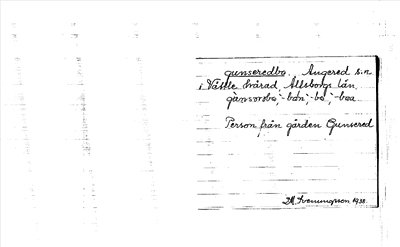 gunseredbo. Angered s:n
i Vättle härad, Älvsborgs län.
gånsorobo, -bón, -bo, -boa
Person från gården Gunsered
Svenningsson 1938.